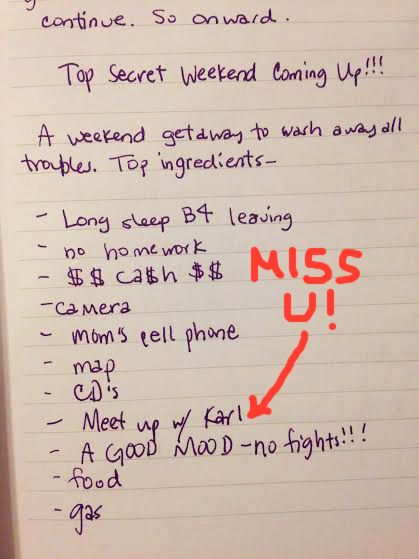 continue. So onward.
Top Secret Weekend Coming Up!!!
A weekend getaway to wash away all
troubles. Top ingredients—
- Long sleep B4 leaving
- no homework
- $$ ca$h $$
- camera
- mom's cell phone
- map
- CD's
- Meet up w/ Karl
- A GOOD MOOD - no fights!!!
- food
- gas
MISS
U!